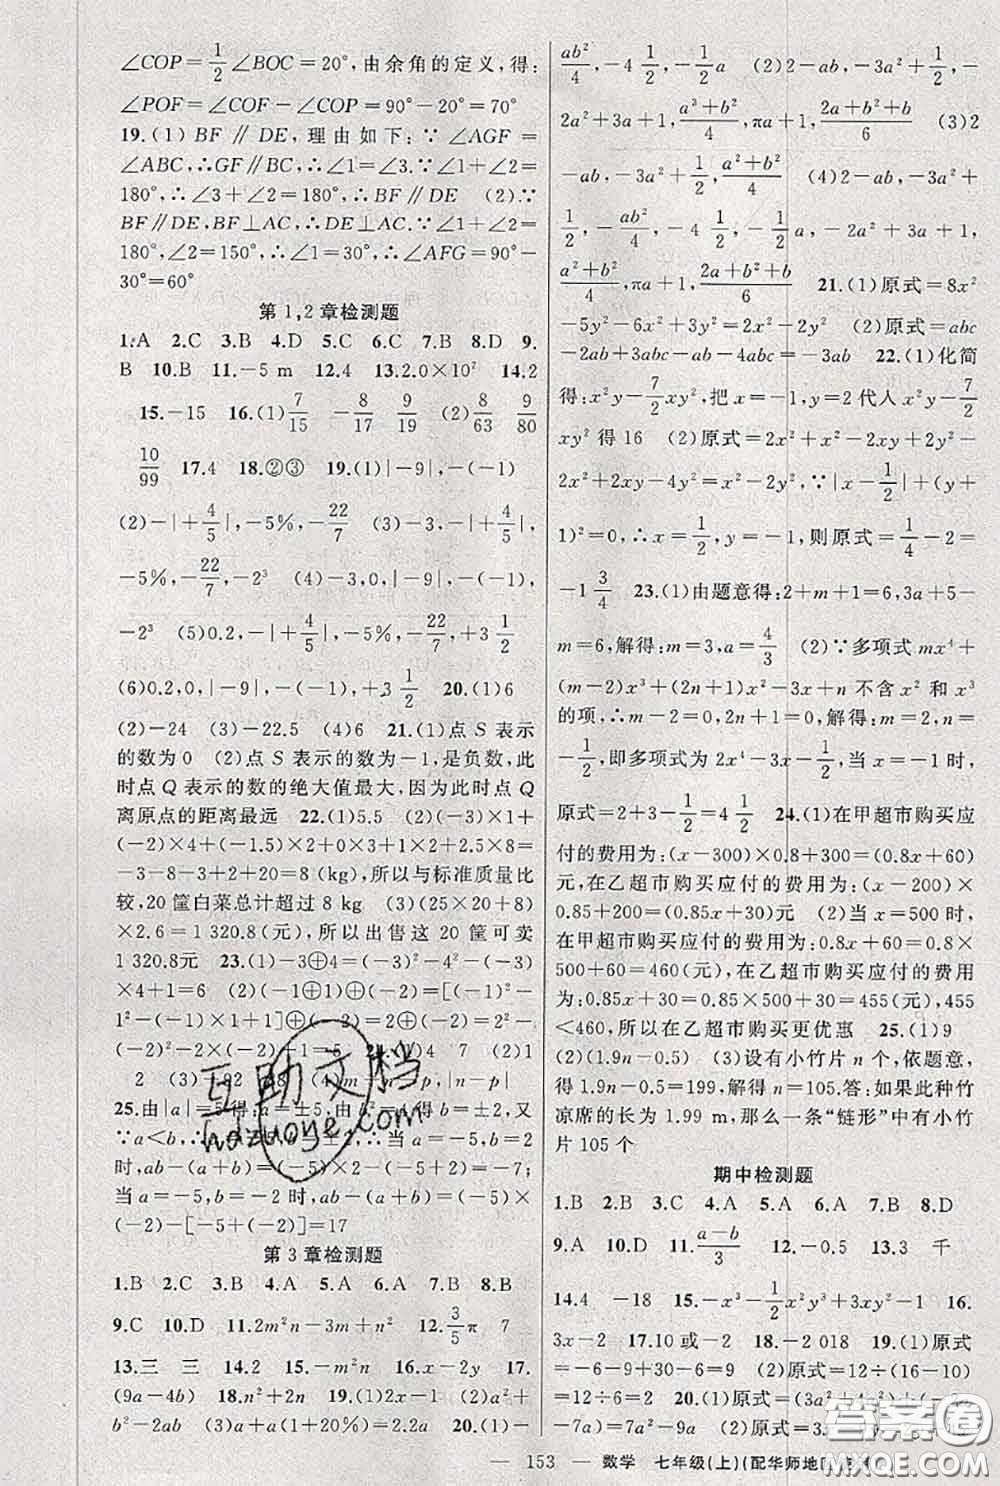 ∠COP=1/2∠BOC=20°,由余角的定义,得:
∠POF=∠COF-∠COP=90°-20°=70°
19.(1)BF∥DE,理由如下:∵∠AGF=
∠ABC,∴GF∥BC,∴∠1=∠3.∵∠1+∠2=
180°,∴∠3+∠2=180°,∴BF∥DE (2)∵
BF∥DE,BF⊥AC,∴DE⊥AC.∵∠1+∠2=
180°,∠2=150°,∴∠1=30°,∴∠AFG=90°-
30°=60°
第1,2章检测题
1.A 2.C 3.B 4.D 5.C 6.C 7.B 8.D 9.
B 10.B 11.-5 m 12.4 13.2.0×10² 14.2
15.-15 16.(1)7/15 -8/17 9/19 (2)8/63 9/80
10/99 17.4 18.②③ 19.(1)|-9|,-(-1)
(2)-|+4/5|,-5%,-22/7 (3)-3,-|+4/5|,
-5%,-22/7,-2³ (4)-3,0,|-9|,-(-1),
-2³ (5)0.2,-|+4/5|,-5%,-22/7,+3 1/2
(6)0.2,0,|-9|,-(-1),+3 1/2 20.(1)6
(2)-24 (3)-22.5 (4)6 21.(1)点S表示
的数为0 (2)点S表示的数为-1,是负数,此
时点Q表示的数的绝大值最大,因此此时点Q
离原点的距离最远 22.(1)5.5 (2)(-3)×1+
(-2)×4+(-1.5)×2+0×3+1×2+2.5×8=
-3-8-3+2+20=8(kg),所以与标准质量比
较,20筐白菜总计超过8 kg (3)(25×20+8)
×2.6=1 320.8(元),所以出售这20筐可卖
1 320.8元 23.(1)-3⊕4=(-3)²-4²-(-3)×
4×1+1=6 (2)(-1⊕1)⊕(-2)=[(-1)²-
1²-(-1)×1+1]⊕(-2)=2⊕(-2)=2²-
4 7 (2)1
2
25.由|a|=5,得:a=±5,由 得b=±2,又
∵a<b,∴ 当a=-5,b=2
时,ab-(a+b)=(-5)×2-(-5+2)=-7;
当a=-5,b=-2时,ab-(a+b)=(-5)×
(-2)-[-5+(-2)]=17
第3章检测题
1.B 2.C 3.B 4.A 5.A 6.A 7.B 8.B
9.C 10.D 11.2m²n-3m+n² 12.3/5π 7
13.三 三 14.2 15.-m²n 16.x-2y 17.
(9a-4b) 18.n²+2n 19.(1)2x-1 (2)a²+
b²-2ab (3)a+a(1+20%)=2.2a 20.(1)-
ab²/4,-4 1/2,-1/2a (2)2-ab,-3a²+1/2,-
2a²+3a+1,(a³+b²)/4,πa+1/2,(2a+b²+b)/6 (3)2
-ab,-3a²+1/2,(a²+b²)/4 (4)2-ab,-3a²+
1/2,ab²/4,-4 1/2,-1/2a,-2a²+3a+1,
(a²+b²)/4,πa+1/2,(2a+b²+b)/6 21.(1)原式=8x²
-5y²-6x²+3y²=2x²-2y² (2)原式=abc
-2ab+3abc-ab-4abc=-3ab 22.(1)化简
得:x²y-7/2xy²,把x=-1,y=2代人x²y-7/2
xy²得16 (2)原式=2x²+x²-2xy+2y²-
2x²+2xy-4y²=x²-2y²,∵|x-1/2|+(y+
1)²=0,∴x=1/2,y=-1,则原式=1/4-2=
-1 3/4 23.(1)由题意得:2+m+1=6,3a+5-
m=6,解得:m=3,a=4/3 (2)∵多项式mx⁴+
(m-2)x³+(2n+1)x²-3x+n不含x²和x³
的项,∴m-2=0,2n+1=0,解得:m=2,n=
-1/2,即多项式为2x⁴-3x-1/2,当x=-1时,
原式=2+3-1/2=4 1/2 24.(1)在甲超市购买应
付的费用为:(x-300)×0.8+300=(0.8x+60)
元,在乙超市购买应付的费用为:(x-200)×
0.85+200=(0.85x+30)元 (2)当x=500时,
在甲超市购买应付的费用为:0.8x+60=0.8×
500+60=460(元),在乙超市购买应付的费用
为:0.85x+30=0.85×500+30=455(元),455
<460,所以在乙超市购买更优惠 25.(1)9
(2)(1.9n-0.5) (3)设有小竹片n个,依题意,
得:1.9n-0.5=199,解得:n=105.答:如果此种竹
凉席的长为1.99 m,那么一条“链形”中有小竹
片105个
期中检测题
1.B 2.B 3.C 4.A 5.A 6.A 7.B 8.D
9.A 10.D 11.(a-b)/3 12.-0.5 13.3 千
14.4 -18 15.-x³-1/2x²y³+3xy²-1 16.
3x-2 17.10或-2 18.-2 018 19.(1)原式
=-6-9+6=-9 (2)原式=12÷(16-10)
=12÷6=2 20.(1)原式=(3a²+4a²)+(-2a
-7a)=7a²-9a (2)原式=
— 153 — 数学 七年级(上)(配华师地
互助文档
hdzuoye.com
答案卷
MXQE.COM